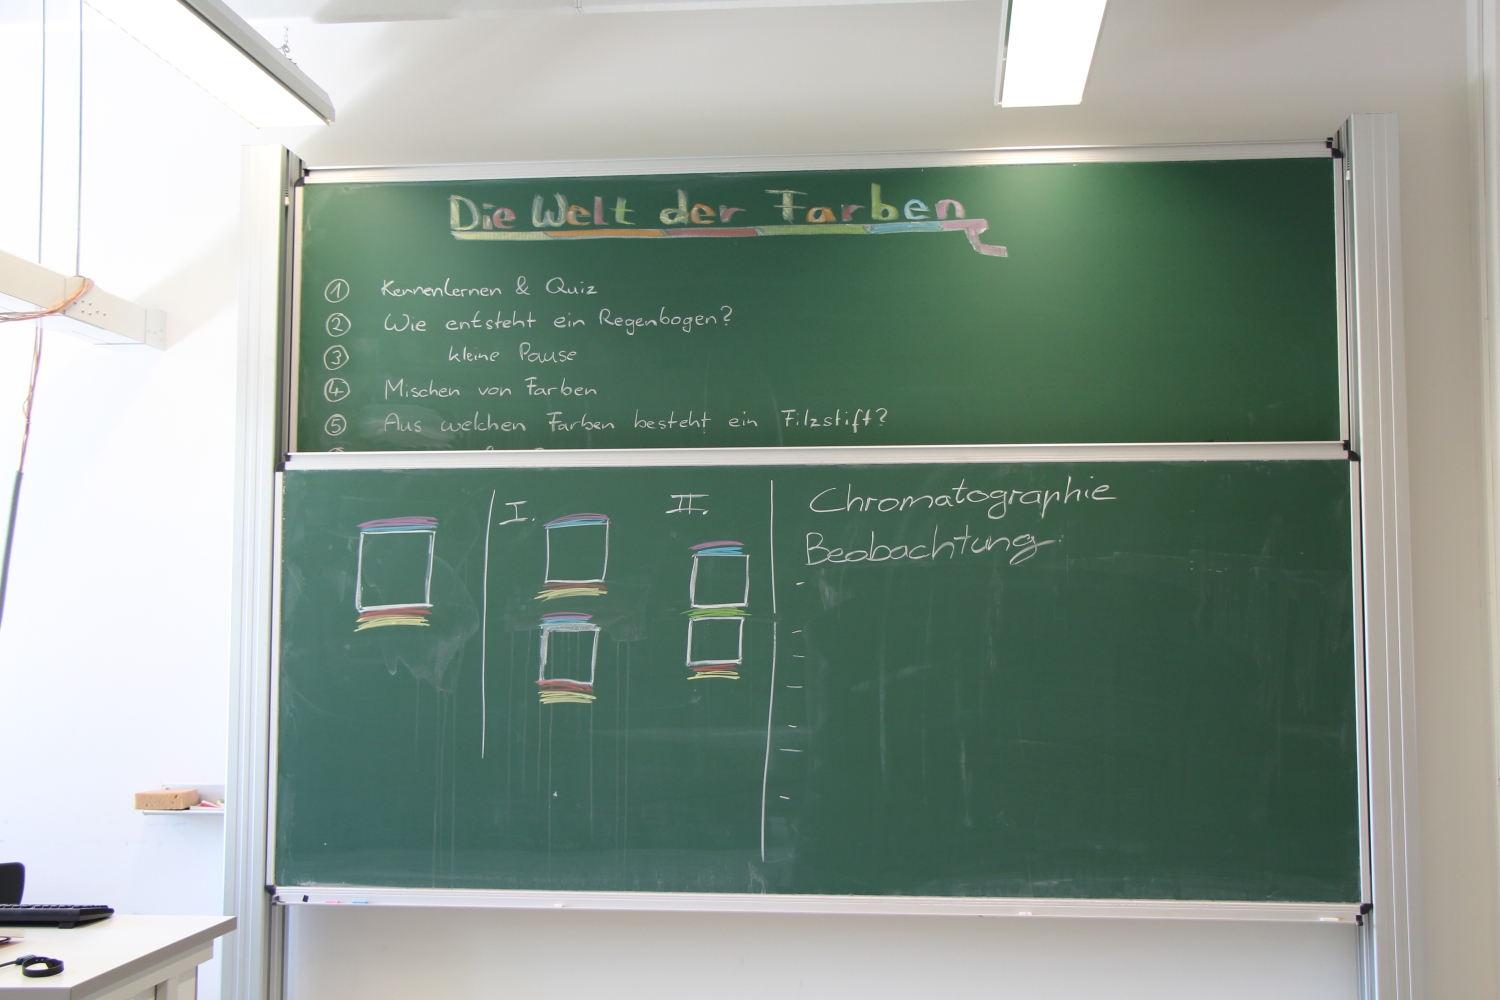 Die Welt der Farben
① Kennenlernen & Quiz
② Wie entsteht ein Regenbogen?
③ kleine Pause
④ Mischen von Farben
⑤ Aus welchen Farben besteht ein Filzstift?
I. II.
Chromatographie
Beobachtung: